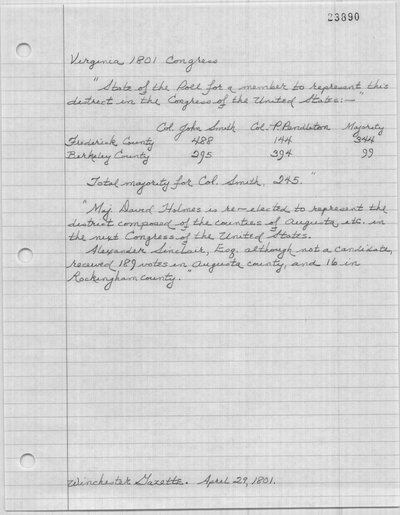 23890
Virginia 1801 Congress
"State of the Poll for a member to represent this
district in the Congress of the United States:—"
Col. John Smith Col. P. Pendleton Majority
Frederick County 488 144 344
Berkeley County 295 394 99
Total majority for Col. Smith, 245."
"Maj. David Holmes is re-elected to represent the
district composed of the counties of Augusta, etc. in
the next Congress of the United States.
Alexander Sinclair, Esq. although not a candidate,
received 189 votes in Augusta county, and 16 in
Rockingham county."
Winchester Gazette. April 29, 1801.